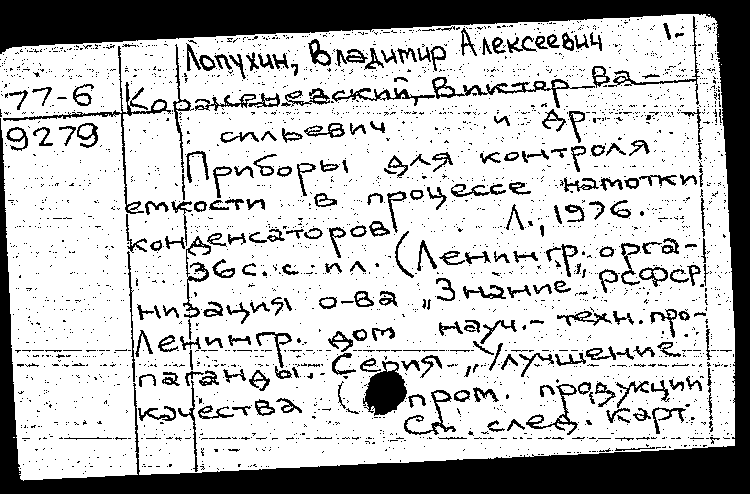 Лопухин, Владимир Алексеевич 1-
77-6 Караженевский, Виктор Ва-
9279 сильевич и др.
Приборы для контроля
емкости в процессе намотки
конденсаторов. Л., 1976.
36 с. с ил. (Ленингр. орга-
низация о-ва „Знание" РСФСР.
Ленингр. дом науч.-техн. про-
паганды. Серия - „Улучшение
качества пром. продукции
См. след. карт.